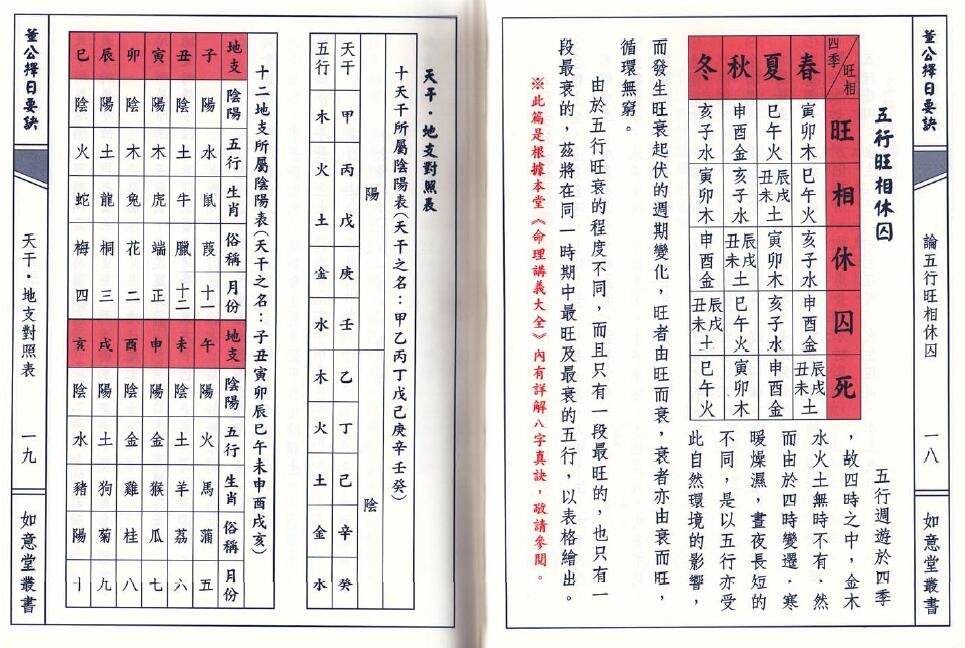 董公擇日要訣
論五行旺相休囚
一八
如意堂叢書
五行旺相休囚
旺相 四季 旺 相 休 囚 死
春 寅卯木 巳午火 亥子水 申酉金 辰戌丑未土
夏 巳午火 辰戌丑未土 寅卯木 亥子水 申酉金
秋 申酉金 亥子水 辰戌丑未土 巳午火 寅卯木
冬 亥子水 寅卯木 申酉金 辰戌丑未土 巳午火
五行週遊於四季
，故四時之中，金木
水火土無時不有．然
而由於四時變遷．寒
暖燥濕，晝夜長短的
不同，是以五行亦受
此自然環境的影響，
而發生旺衰起伏的週期變化，旺者由旺而衰，衰者亦由衰而旺，
循環無窮。
由於五行旺衰的程度不同，而且只有一段最旺的，也只有一
段最衰的，茲將在同一時期中最旺及最衰的五行，以表格繪出。
※此篇是根據本堂《命理講義大全》內有詳解八字真訣，敬請參閱。
天干・地支對照表
十天干所屬陰陽表(天干之名：甲乙丙丁戊己庚辛壬癸)
陽 陰
天干 甲 丙 戊 庚 壬 乙 丁 己 辛 癸
五行 木 火 土 金 水 木 火 土 金 水
十二地支所屬陰陽表(天干之名：子丑寅卯辰巳午未申酉戌亥)
地支 陰陽 五行 生肖 俗稱 月份 地支 陰陽 五行 生肖 俗稱 月份
子 陽 水 鼠 葭 十一 午 陽 火 馬 蒲 五
丑 陰 土 牛 臘 十二 未 陰 土 羊 荔 六
寅 陽 木 虎 端 正 申 陽 金 猴 瓜 七
卯 陰 木 兔 花 二 酉 陰 金 雞 桂 八
辰 陽 土 龍 桐 三 戌 陽 土 狗 菊 九
巳 陰 火 蛇 梅 四 亥 陰 水 豬 陽 十
董公擇日要訣
天干・地支對照表
一九
如意堂叢書